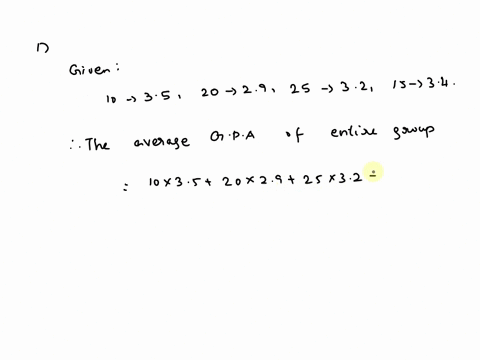 1)
Given:
10 → 3.5, 20 → 2.9, 25 → 3.2, 15 → 3.4.
∴ The average G.P.A of entire group
= 10 × 3.5 + 20 × 2.9 + 25 × 3.2 =